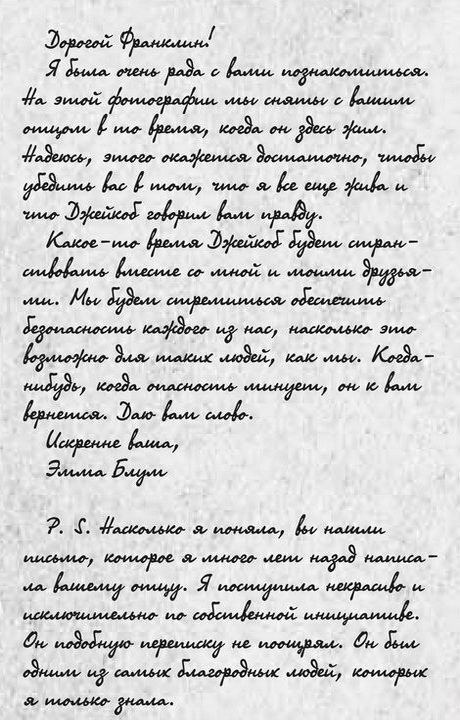 Дорогой Франклин!
Я была очень рада с вами познакомиться.
На этой фотографии мы сняты с вашим
отцом в то время, когда он здесь жил.
Надеюсь, этого окажется достаточно, чтобы
убедить вас в том, что я все еще жива и
что Джейкоб говорил вам правду.
Какое-то время Джейкоб будет стран-
ствовать вместе со мной и моими друзья-
ми. Мы будем стремиться обеспечить
безопасность каждого из нас, насколько это
возможно для таких людей, как мы. Когда-
нибудь, когда опасность минует, он к вам
вернется. Даю вам слово.
Искренне ваша,
Эмма Блум
P. S. Насколько я поняла, вы нашли
письмо, которое я много лет назад написа-
ла вашему отцу. Я поступила некрасиво и
исключительно по собственной инициативе.
Он подобную переписку не поощрял. Он был
одним из самых благородных людей, которых
я только знала.